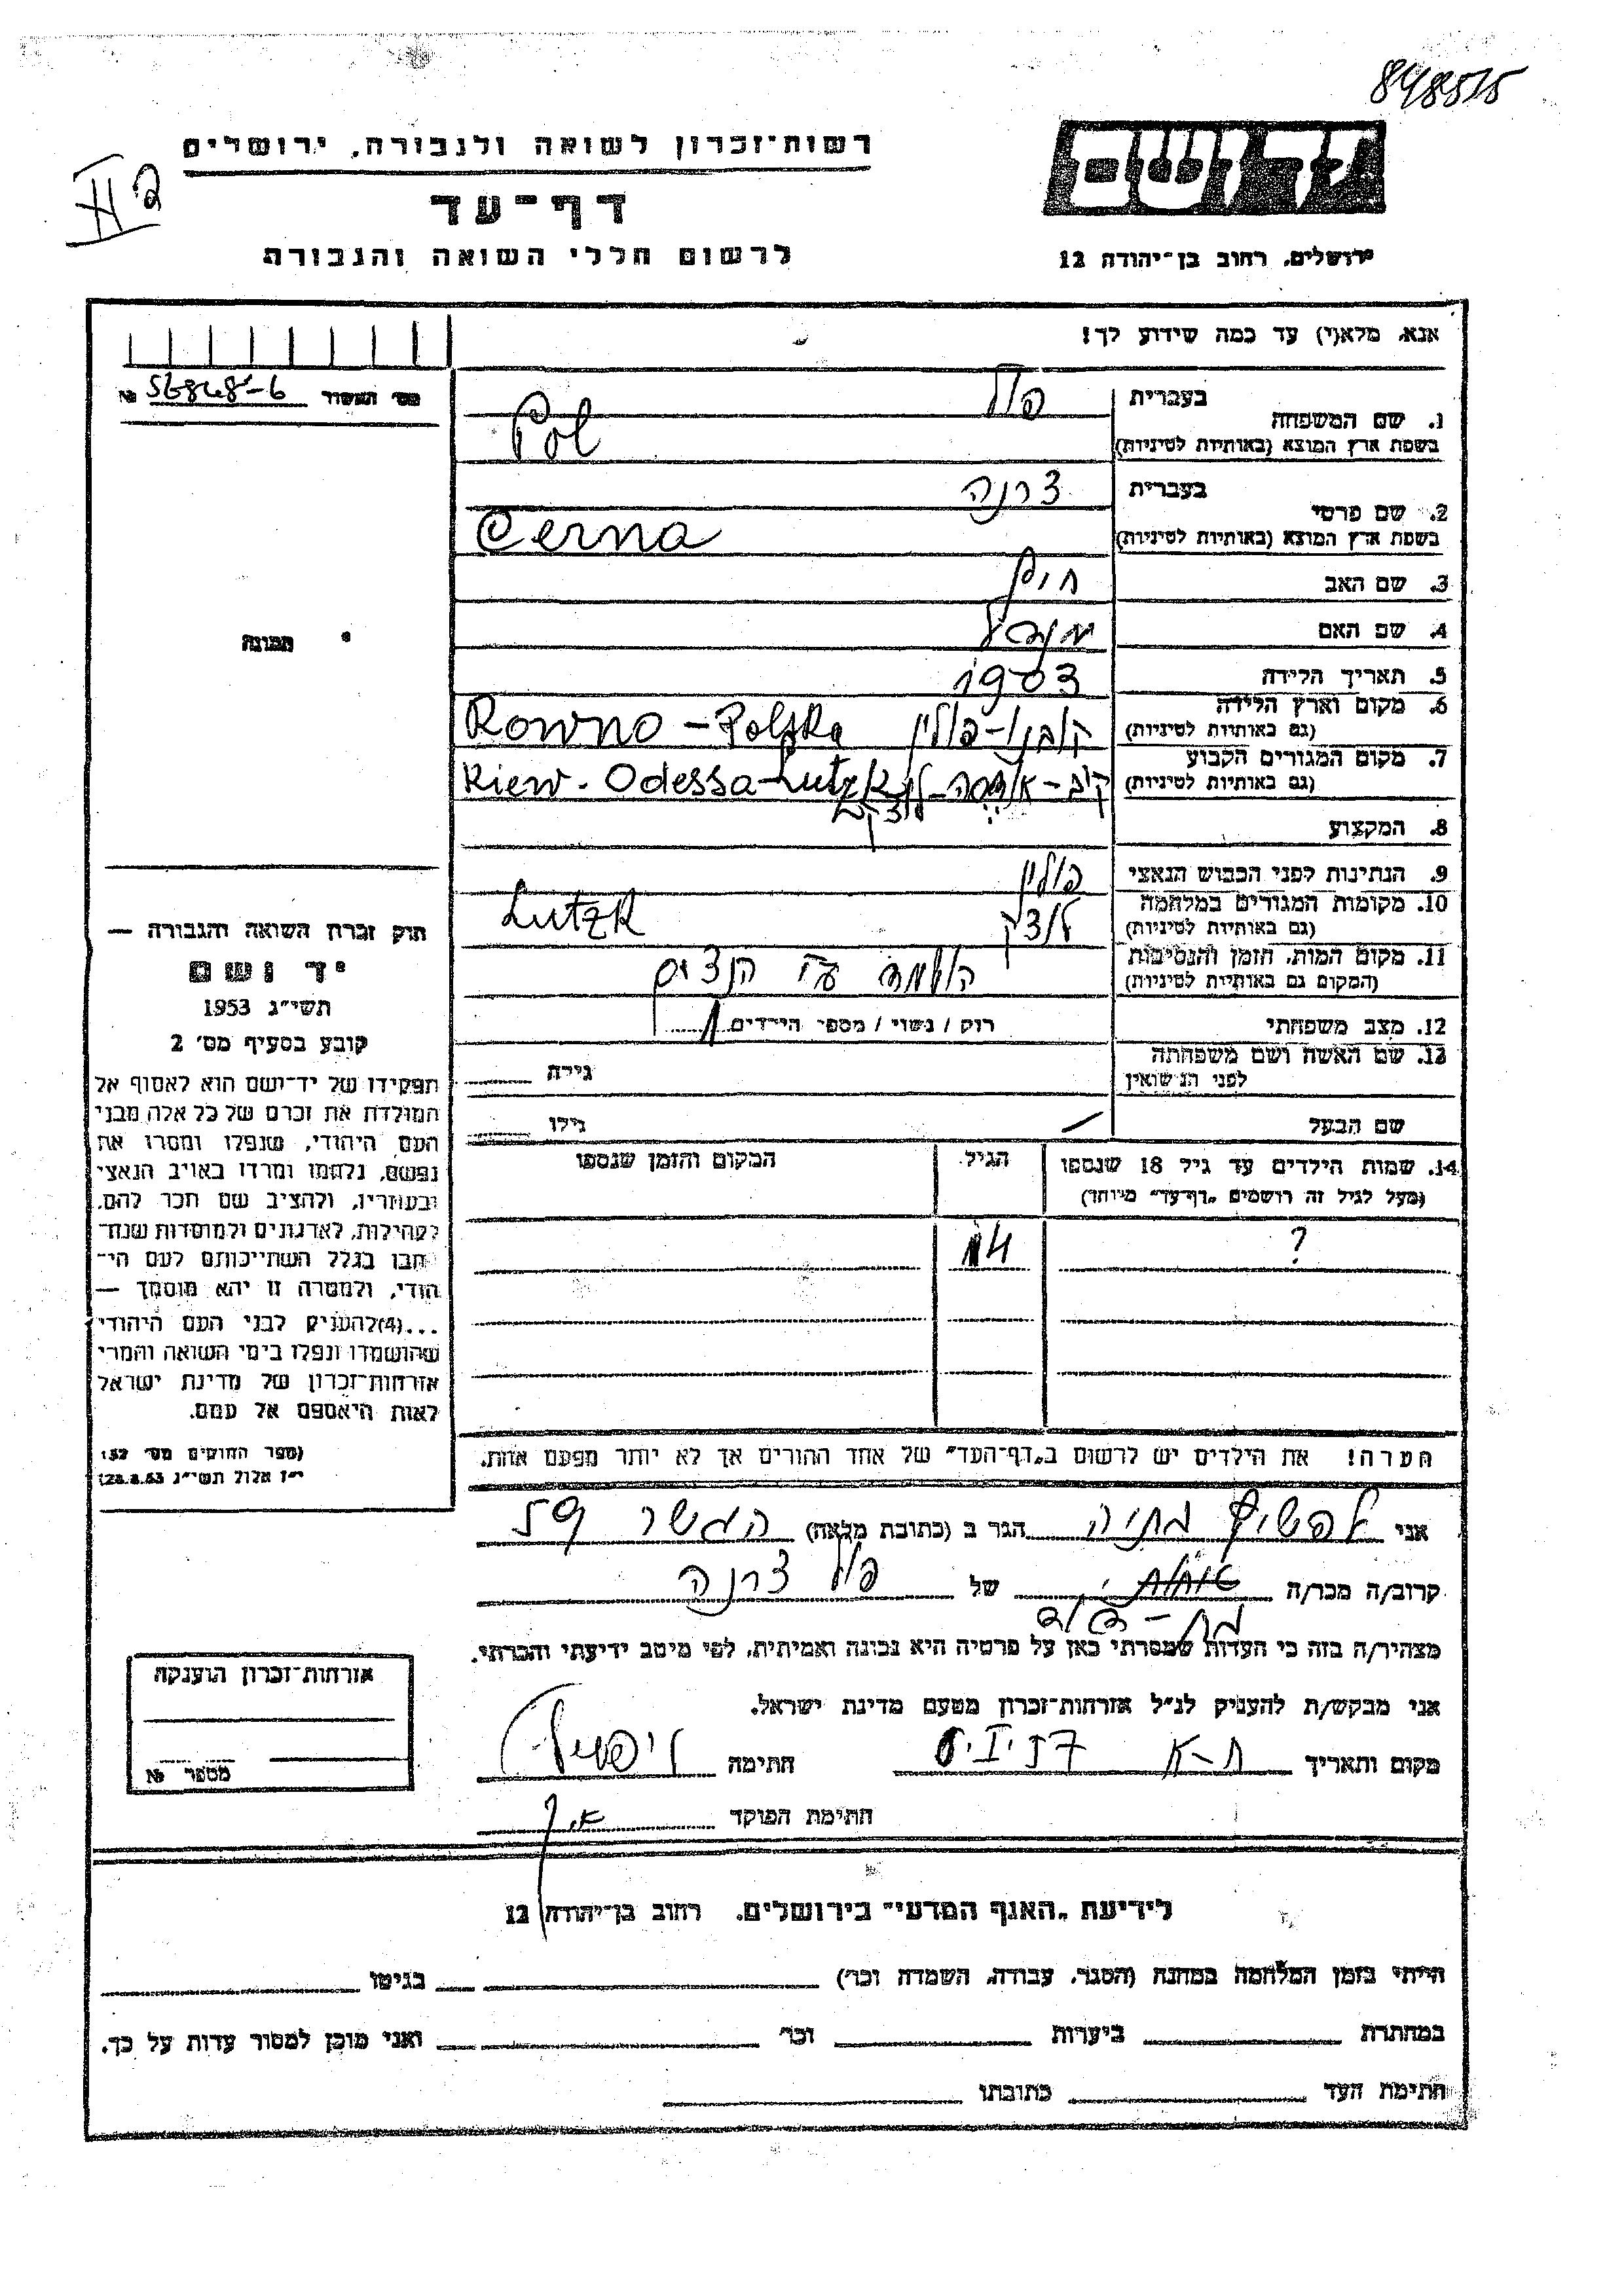 848515
רשות־זכרון לשואה ולגבורה, ירושלים
דף־עד
לרשום חללי השואה והגבורה
יד ושם
ירושלים, רחוב בן־יהודה 12
אנא, מלא(י) עד כמה שידוע לך!
מס' האשור 56848-6 №
1. שם המשפחה
בעברית פול
בשפת ארץ המוצא (באותיות לטיניות) Pol
2. שם פרטי
בעברית צרנה
בשפת ארץ המוצא (באותיות לטיניות) Cerna
3. שם האב
4. שם האם
5. תאריך הלידה 1903
6. מקום וארץ הלידה
(גם באותיות לטיניות) פולין Rowno – Polska
7. מקום המגורים הקבוע
(גם באותיות לטיניות) Kiew - Odessa - Lutzk
8. המקצוע
9. הנתינות לפני הכבוש הנאצי פולין
10. מקומות המגורים במלחמה
(גם באותיות לטיניות) לוצק Lutzk
11. מקום המות, הזמן והנסיבות
(המקום גם באותיות לטיניות)
12. מצב משפחתי רוק / נשוי / מספר הילדים 1
13. שם האשה ושם משפחתה
לפני הנישואין גילה
שם הבעל גילו
14. שמות הילדים עד גיל 18 שנספו הגיל המקום והזמן שנספו
(מעל לגיל זה רושמים „דף־עד" מיוחד)
? 4
הערה! את הילדים יש לרשום ב„דף־העד" של אחד ההורים אך לא יותר מפעם אחת.
תמונה
חוק זכרון השואה והגבורה —
יד ושם
תשי"ג 1953
קובע בסעיף מס' 2
תפקידו של יד־ושם הוא לאסוף אל
המולדת את זכרם של כל אלה מבני
העם היהודי, שנפלו ומסרו את
נפשם, נלחמו ומרדו באויב הנאצי
ובעוזריו, ולהציב שם וזכר להם,
לקהילות, לארגונים ולמוסדות שנח־
רבו בגלל השתייכותם לעם הי־
הודי, ולמטרה זו יהא מוסמך —
...(4) להעניק לבני העם היהודי
שהושמדו ונפלו בימי השואה והמרי
אזרחות־זכרון של מדינת ישראל
לאות היאספם אל עמם.
(ספר החוקים מס' 132
י"ז אלול תשי"ג 28.8.53)
אני הגר ב (כתובת מלאה) הגשר 59
קרוב/ה מכר/ה בת-דוד של פול צרנה
מצהיר/ה בזה כי העדות שמסרתי כאן על פרטיה היא נכונה ואמיתית, לפי מיטב ידיעתי והכרתי.
אני מבקש/ת להעניק לנ"ל אזרחות־זכרון מטעם מדינת ישראל.
מקום ותאריך ת-א חתימה
חתימת הפוקד
אזרחות־זכרון הוענקה
מספר №
לידיעת „האגף המדעי" בירושלים, רחוב בן־יהודה 12
הייתי בזמן המלחמה במחנה (הסגר, עבודה, השמדה וכו') בגיטו
במחתרת ביערות וכו' ואני מוכן למסור עדות על כך.
חתימת העד כתובתו